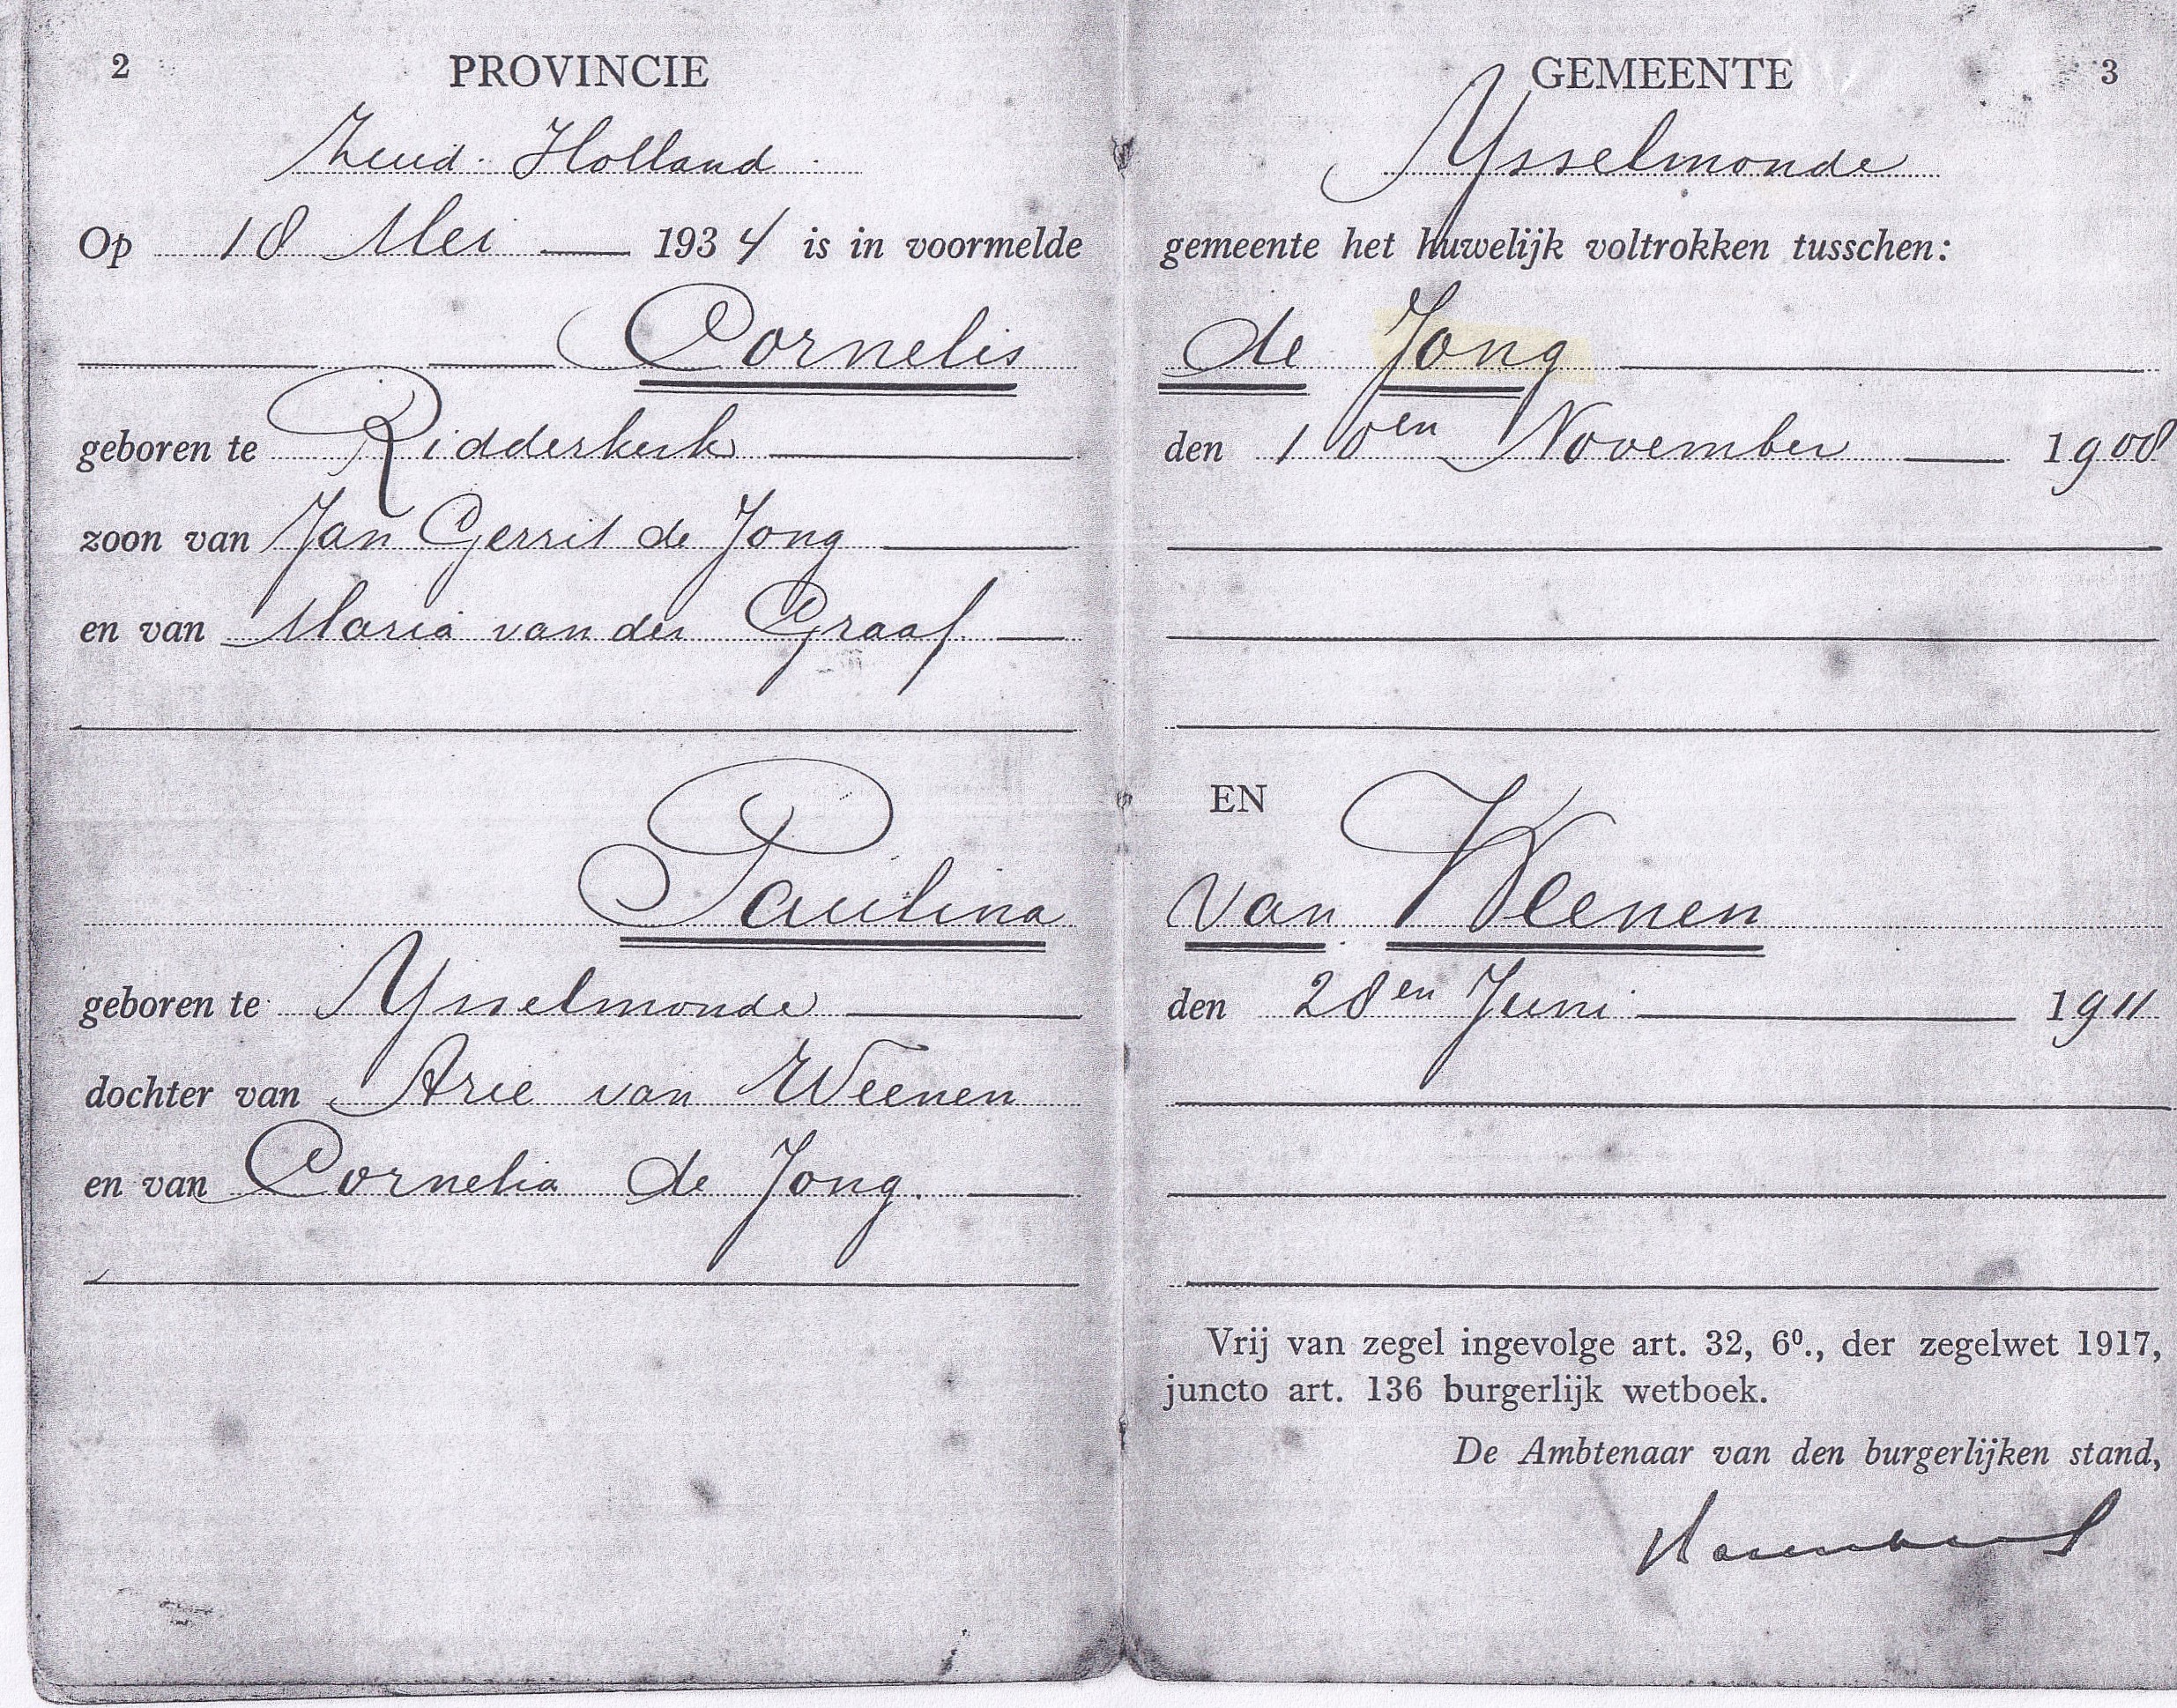 2 PROVINCIE
Zuid-Holland
Op 18 Mei 1934 is in voormelde
Cornelis
geboren te Ridderkerk
zoon van Jan Gerrit de Jong
en van Maria van der Graaf
Paulina
geboren te Ysselmonde
dochter van Arie van Weenen
en van Cornelia de Jong.
GEMEENTE 3
Ysselmonde
gemeente het huwelijk voltrokken tusschen:
de Jong
den 10en November 1908
EN
van Weenen
den 28en Juni 1911
Vrij van zegel ingevolge art. 32, 6º., der zegelwet 1917,
juncto art. 136 burgerlijk wetboek.
De Ambtenaar van den burgerlijken stand,